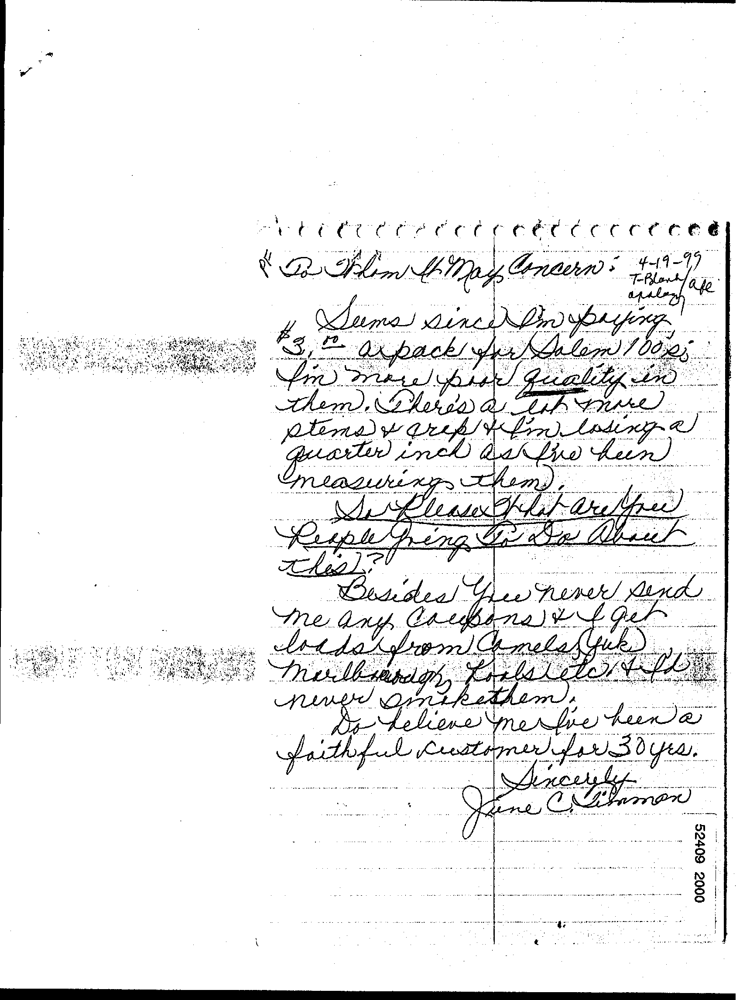 To Whom It May Concern:
4-19-99
T-Blank/ape
apology
Seems since I'm paying
$3.00 a pack for Salem 100's;
I'm more poor quality in
them. There's a lot more
stems & crep & I'm losing a
quarter inch as I've been
measuring them.
So Please What are You
People Going To Do About
this?
Besides You never send
me any Coupons & I get
loads from Camels (Yuk)
Marlborough, Kools etc. & I'd
never smoke them.
Do believe me I've been a
faithful customer for 30 yrs.
Sincerely
June C. Simmon
52409 2000